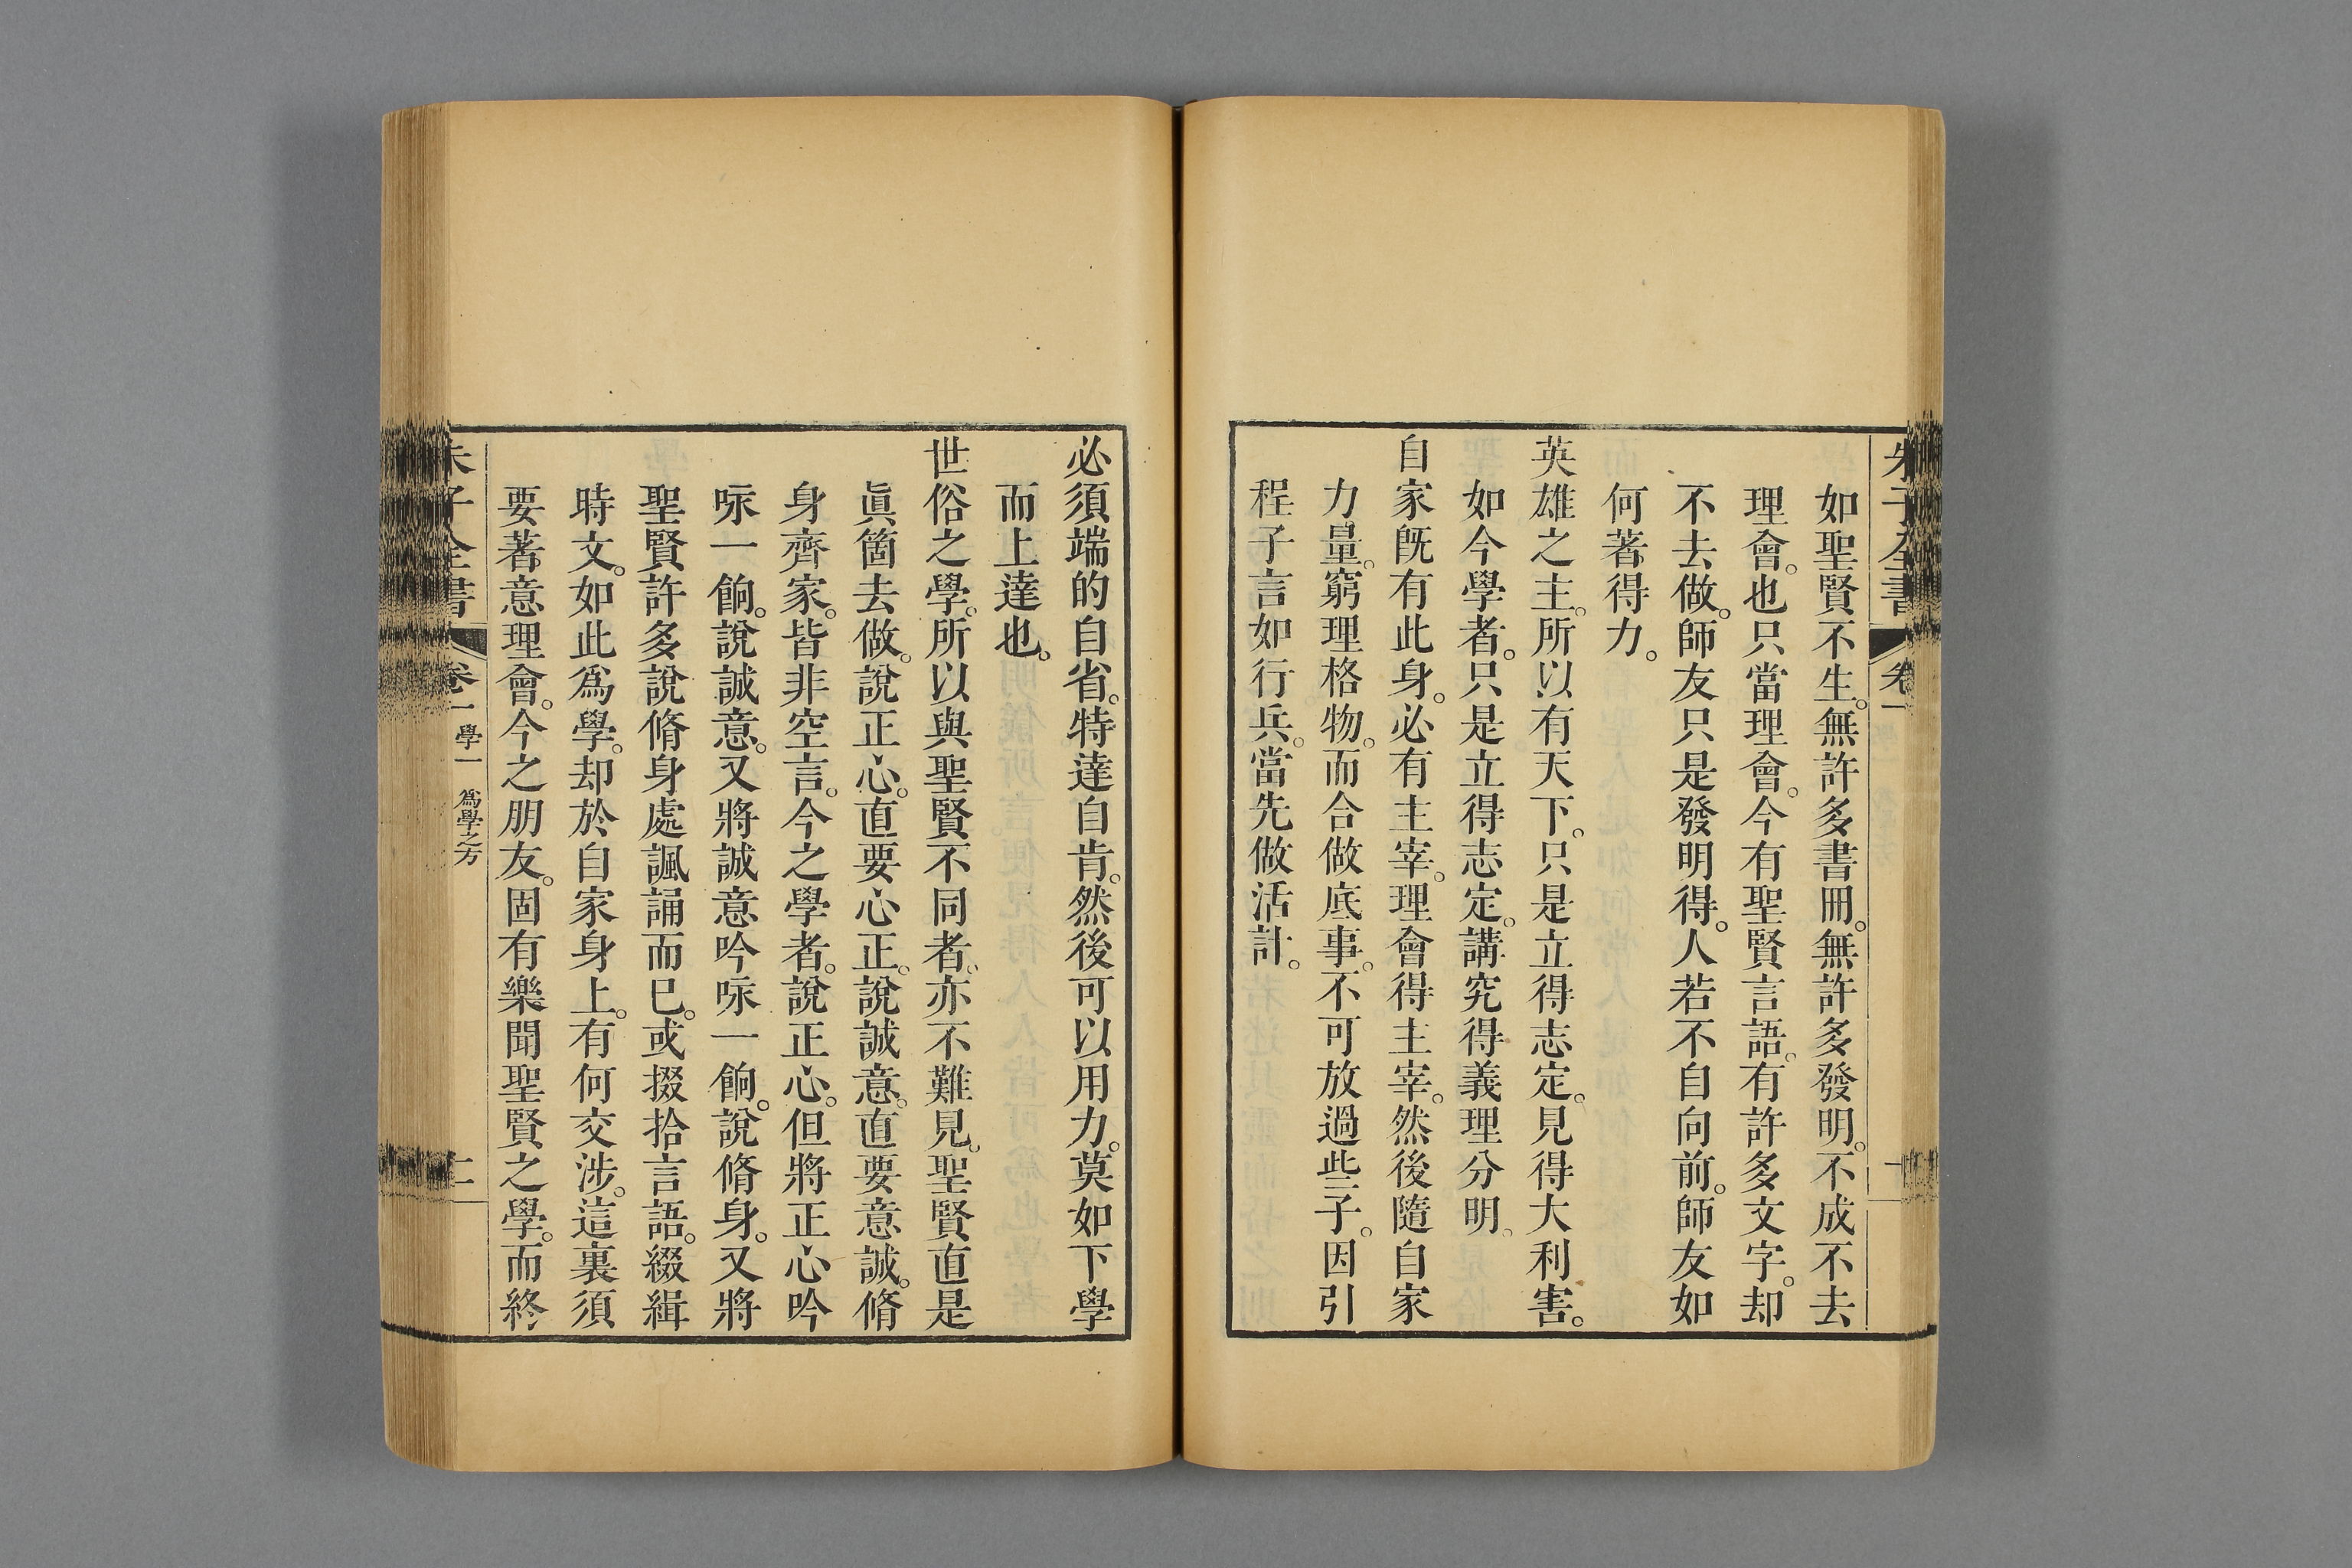 朱子全書 卷一
如聖賢不生。無許多書冊。無許多發明。不成不去
理會。也只當理會。今有聖賢言語。有許多文字。却
不去做。師友只是發明得。人若不自向前。師友如
何著得力。
英雄之主。所以有天下。只是立得志定。見得大利害。
如今學者。只是立得志定。講究得義理分明。
自家旣有此身。必有主宰。理會得主宰。然後隨自家
力量。窮理格物。而合做底事。不可放過些子。因引
程子言如行兵。當先做活計。
必須端的自省。特達自肯。然後可以用力。莫如下學
而上達也。
世俗之學。所以與聖賢不同者。亦不難見。聖賢直是
眞箇去做。說正心。直要心正。說誠意。直要意誠。脩
身齊家。皆非空言。今之學者。說正心。但將正心吟
咏一餉。說誠意。又將誠意吟咏一餉。說脩身。又將
聖賢許多說脩身處諷誦而已。或掇拾言語。綴緝
時文。如此爲學。却於自家身上。有何交涉。這裏須
要著意理會。今之朋友。固有樂聞聖賢之學。而終
朱子全書 卷一 學一 爲學之方